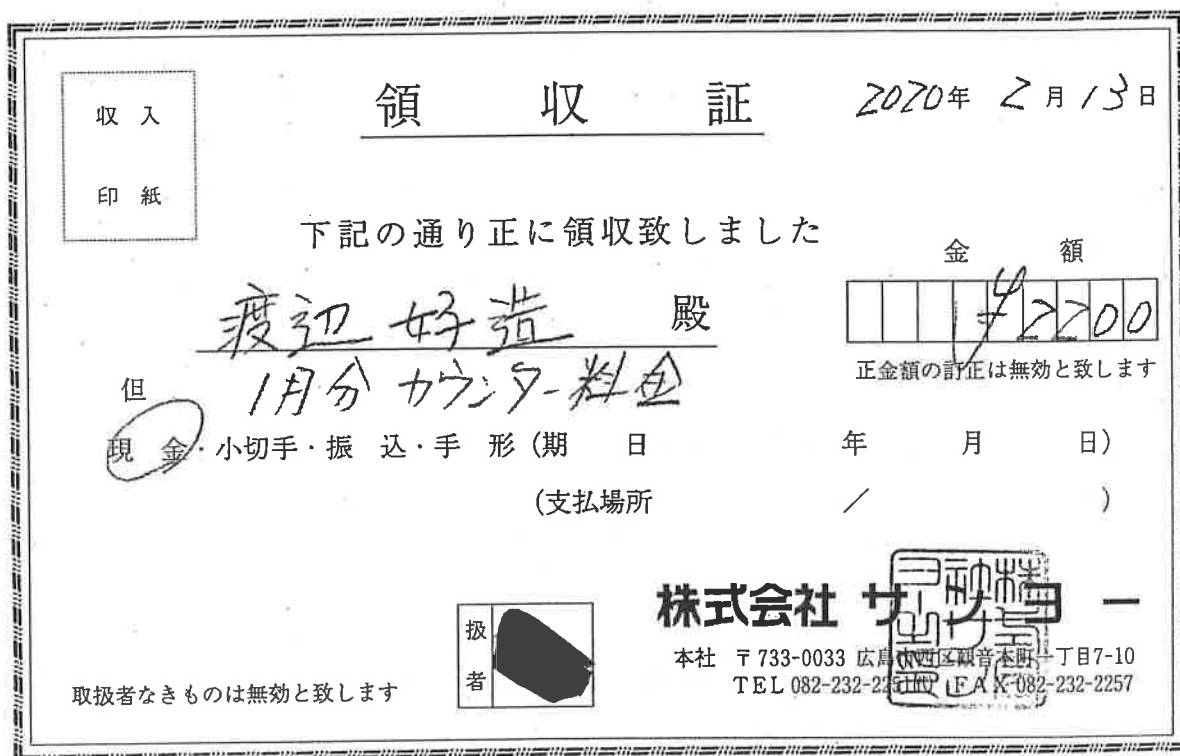 収入
印紙
領収証
2020年 2月13日
下記の通り正に領収致しました
金額
渡辺 好造 殿
¥2200
正金額の訂正は無効と致します
但 1月分 カウンター料金
現金・小切手・振込・手形(期日 年 月 日)
(支払場所 / )
株式会社 サンヨー
扱者
本社 〒733-0033 広島市西区観音本町一丁目7-10
TEL 082-232-2251㈹ FAX 082-232-2257
取扱者なきものは無効と致します